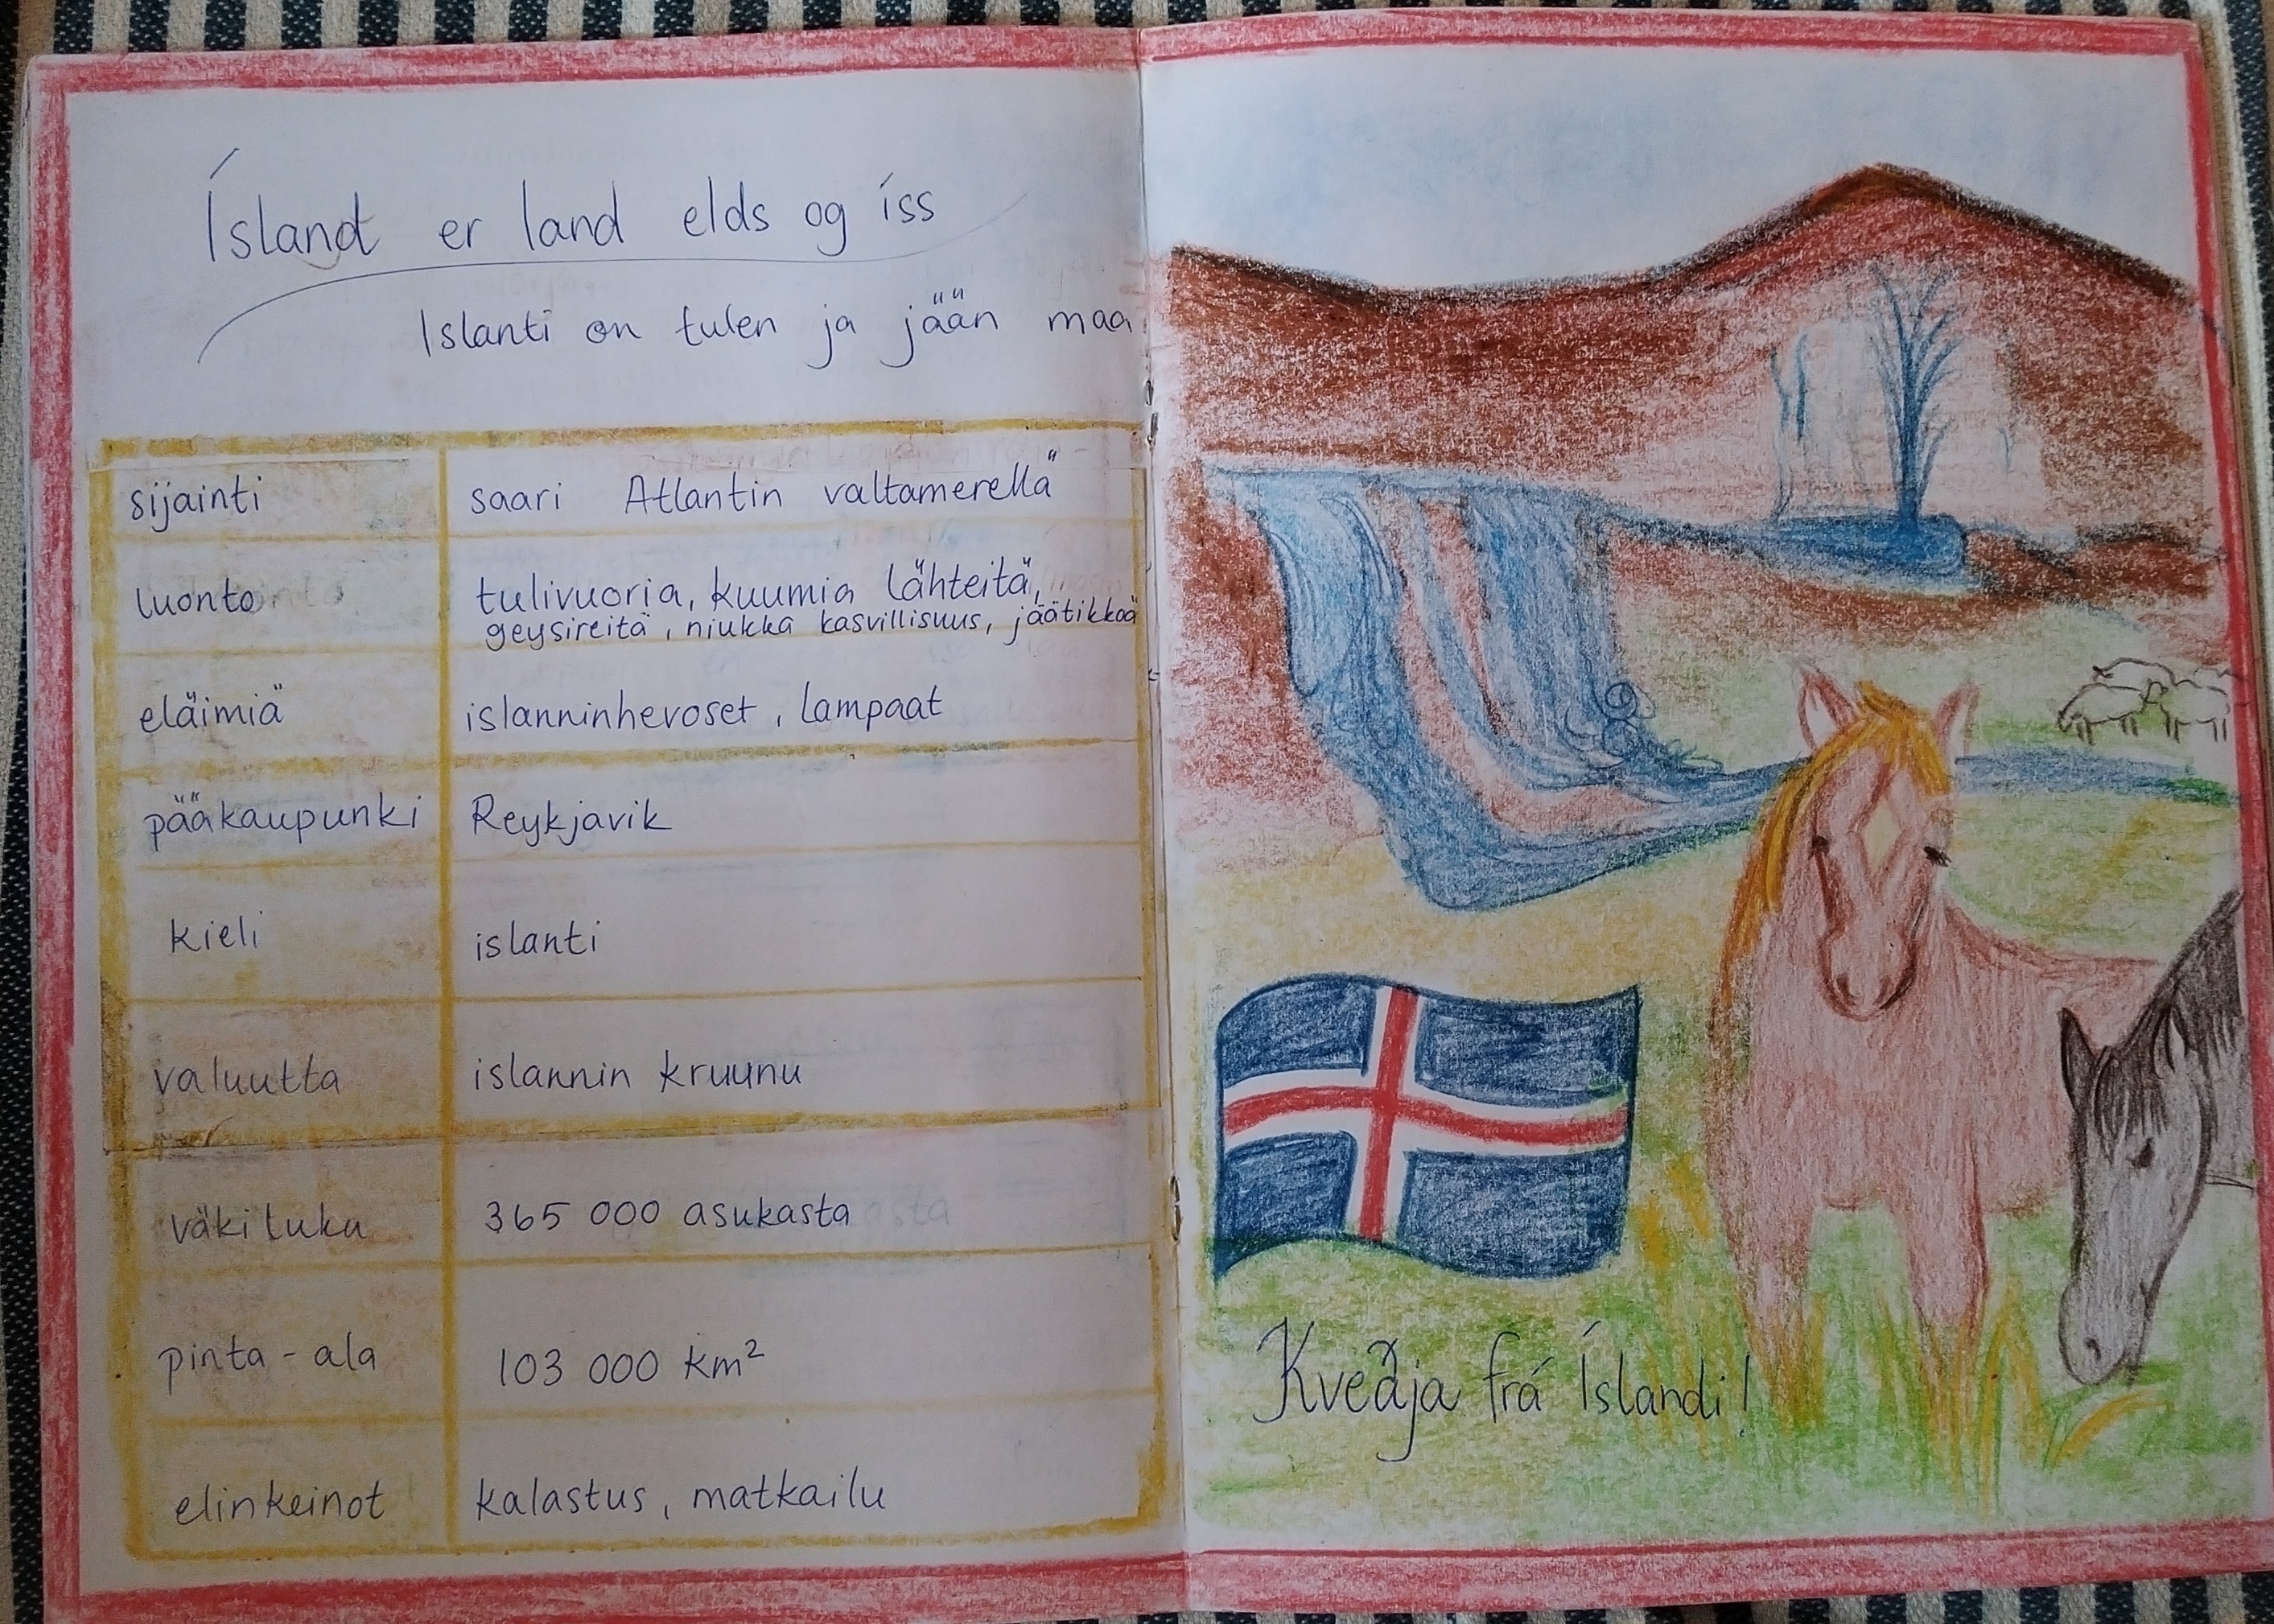 Ísland er land elds og íss
Islanti on tulen ja jään maa
sijainti saari Atlantin valtamerellä
luonto tulivuoria, kuumia lähteitä,
geysireitä, niukka kasvillisuus, jäätikköä
eläimiä islanninhevoset, lampaat
pääkaupunki Reykjavik
kieli islanti
valuutta islannin kruunu
väkiluku 365 000 asukasta
pinta-ala 103 000 km²
elinkeinot kalastus, matkailu
Kveðja frá Íslandi!